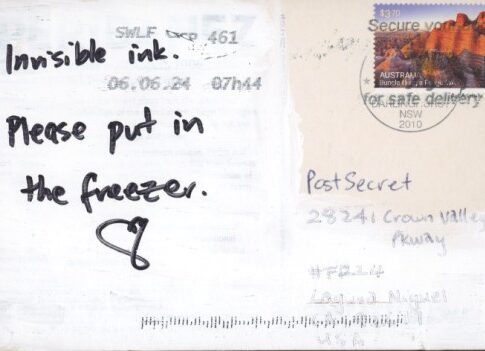 SWLF DSP 461
06.06.24 07h44
Invisible ink.
Please put in
the freezer.
$3.20
AUSTRALIA
Secure your
for safe delivery
DARLINGHURST
NSW
2010
PostSecret
28241 Crown Valley
Pkway
Laguna Niguel
USA